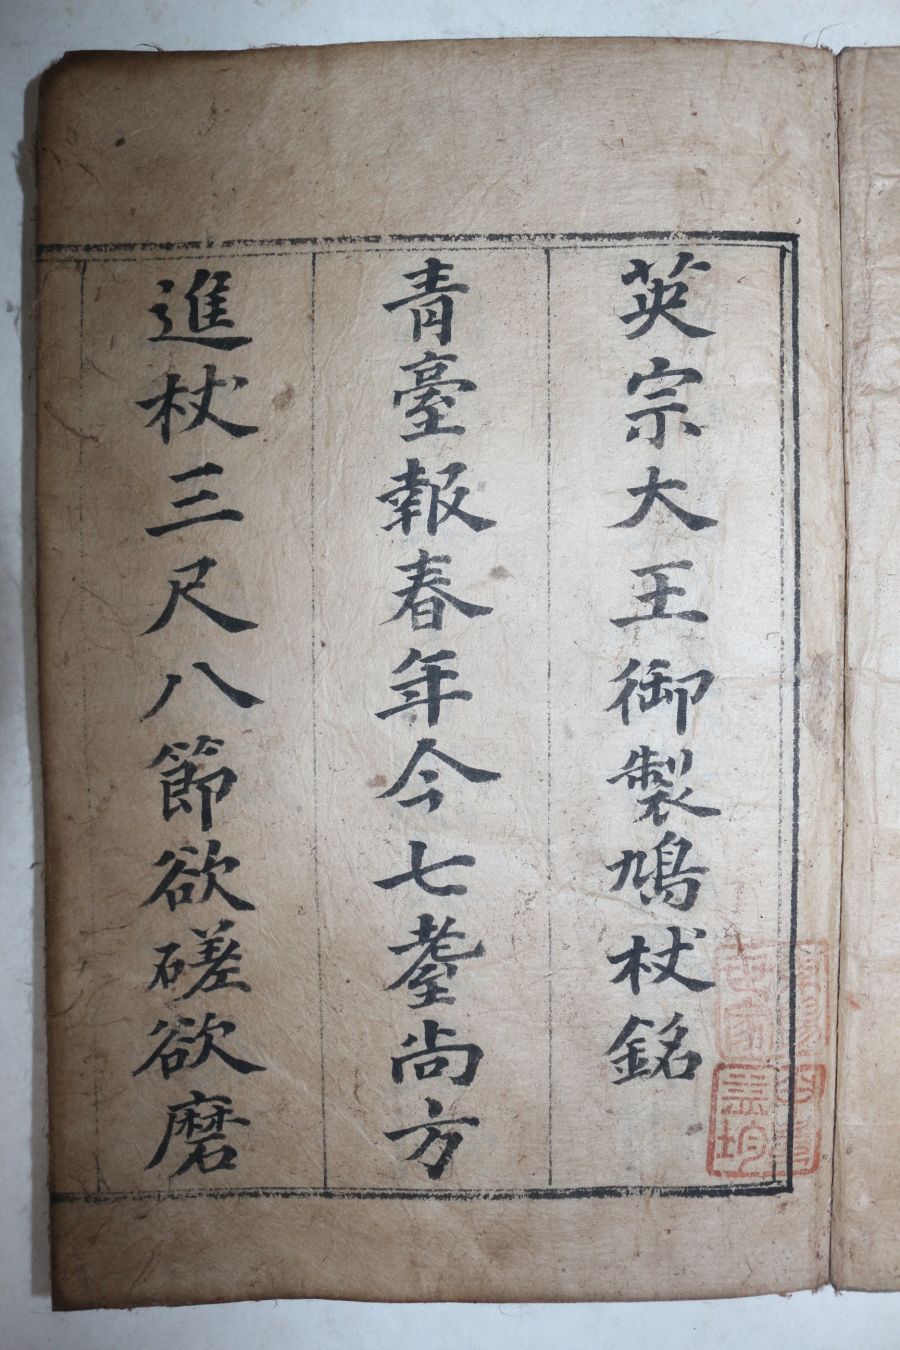 英宗大王御製鳩杖銘
青臺報春年今七耋尚方
進杖三尺八節欲磋欲磨